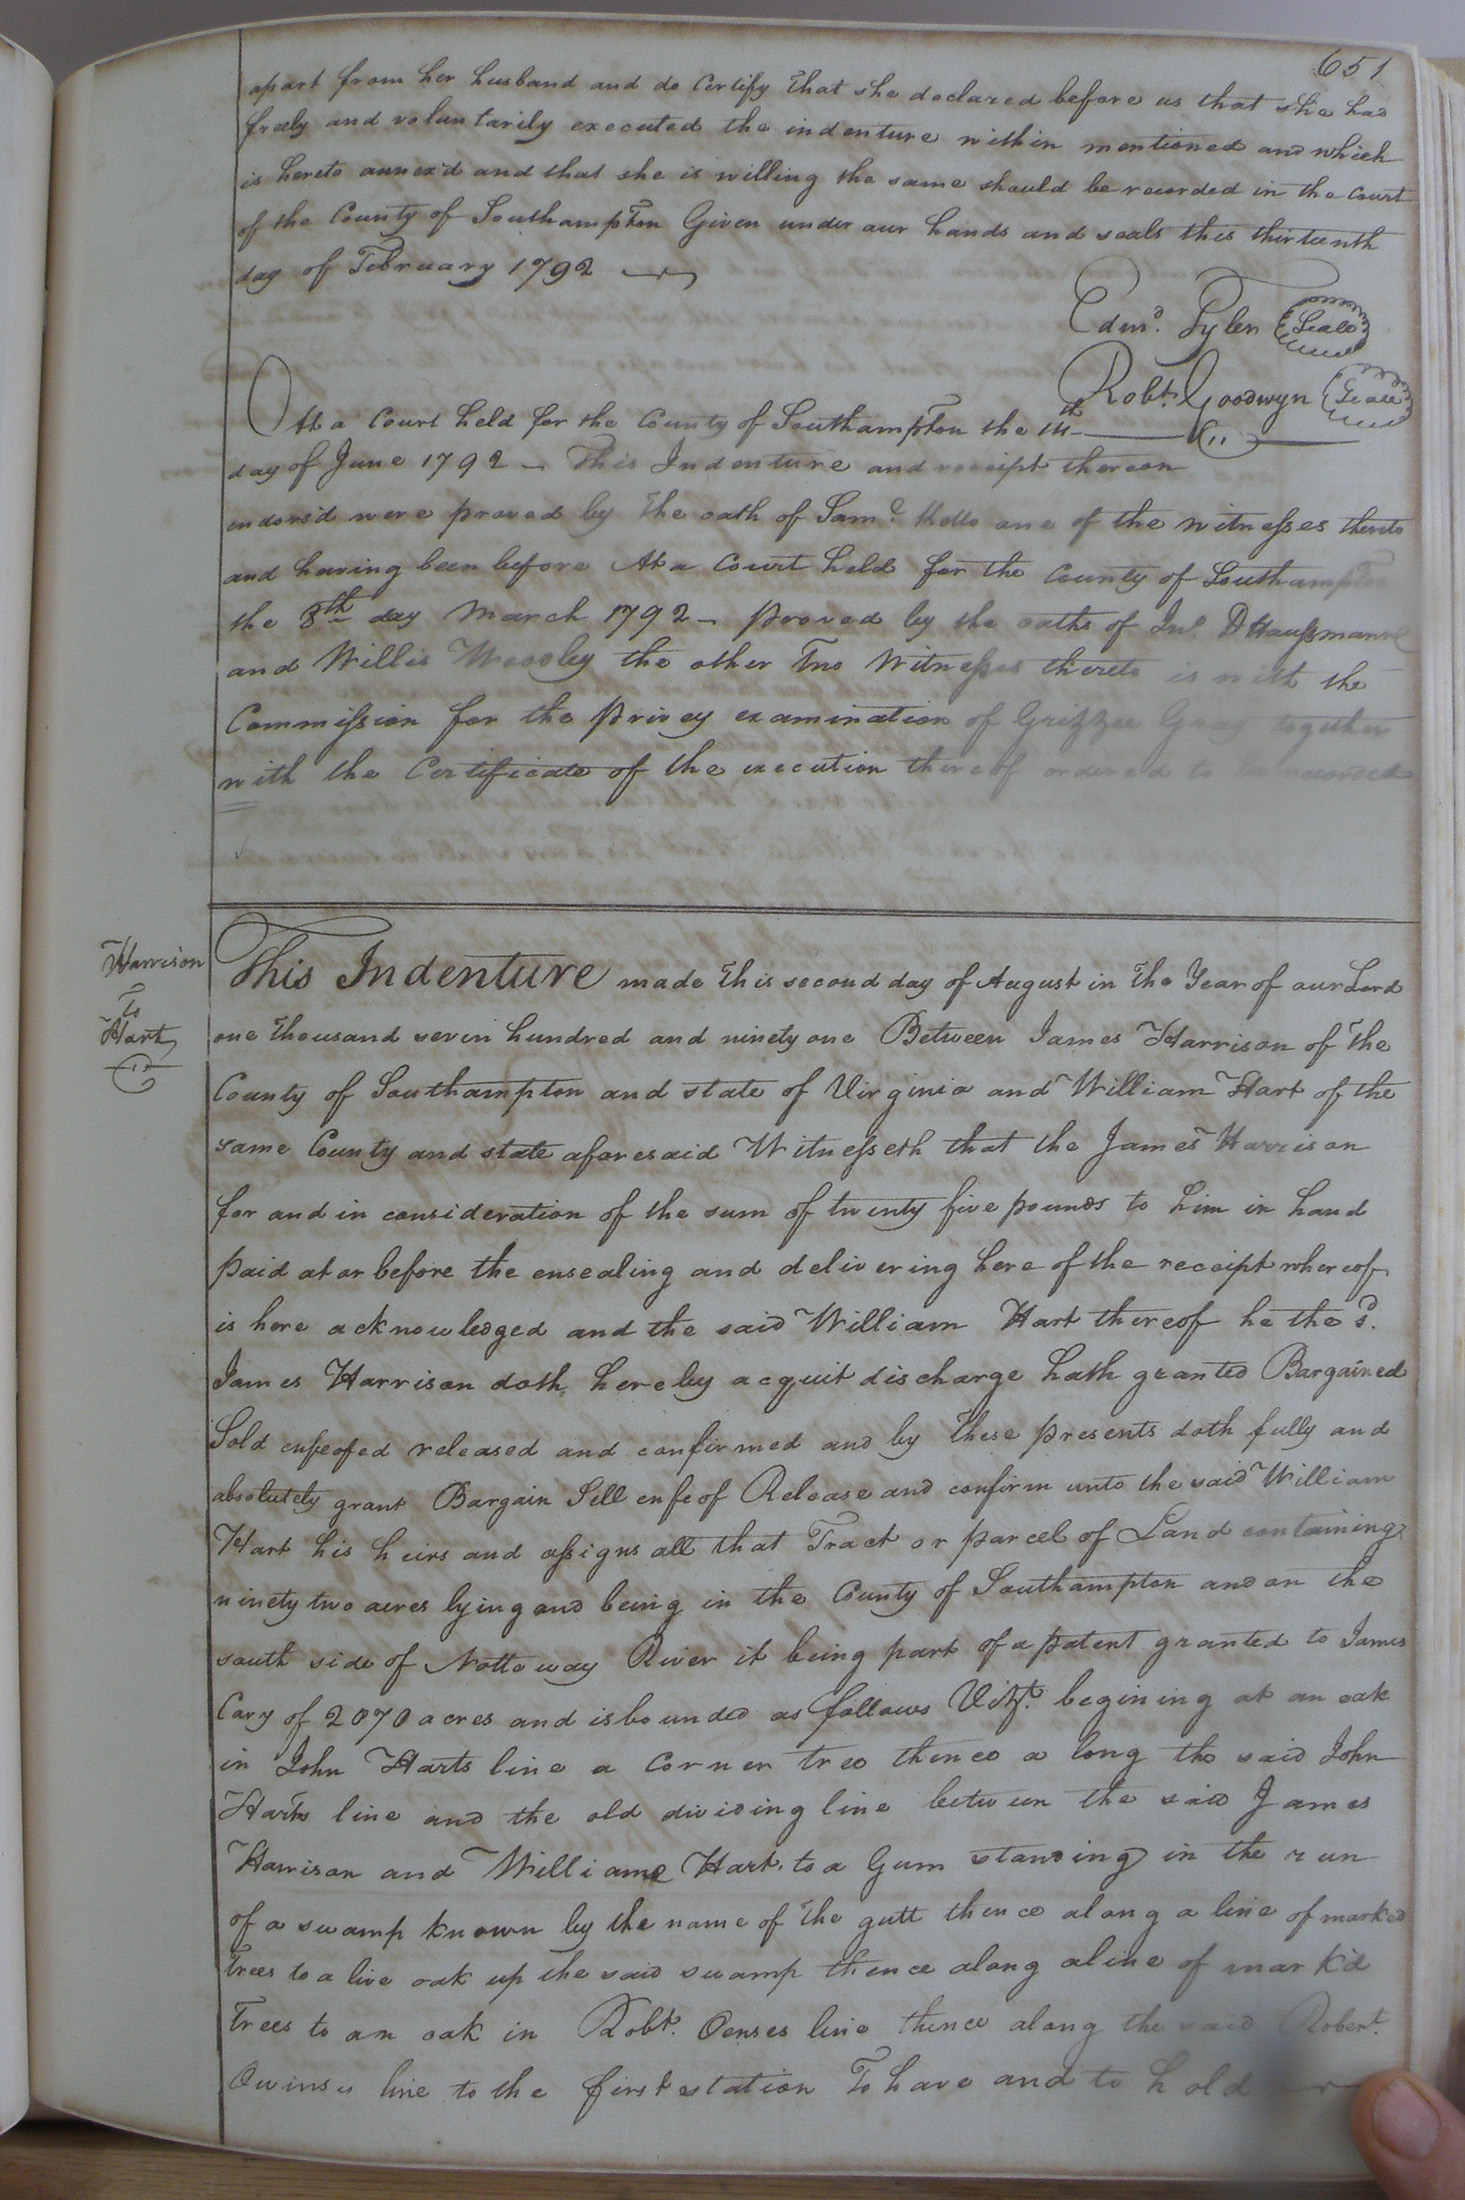 651
apart from her husband and do Certify that she declared before us that she had
freely and voluntarily executed the indenture within mentioned and which
is hereto annex'd and that she is willing the same should be recorded in the Court
of the County of Southampton Given under our hands and seals this thirteenth
day of February 1792
Edmd. Tyler Seal
Robt. Goodwyn Seal
At a Court held for the County of Southampton the 14th
day of June 1792 — This Indenture and receipt thereon
endors'd were proved by the oath of Saml. Kello one of the witnesses thereto
and having been before At a Court held for the County of Southampton
the 8th day March 1792 — proved by the oaths of Jno. D Haussmann
and Willis Woodley the other Two Witnesses thereto is with the
Commission for the privey examination of Grizzee Gray together
with the Certificate of the execution thereof ordered to be recorded
Harrison
To
Hart
This Indenture made this second day of August in the Year of our Lord
one thousand seven hundred and ninety one Between James Harrison of the
County of Southampton and state of Virginia and William Hart of the
same County and state aforesaid Witnesseth that the James Harrison
for and in consideration of the sum of twenty five pounds to him in hand
paid at or before the ensealing and delivering here of the receipt whereof
is here acknowledged and the said William Hart thereof he the sd.
James Harrison doth hereby acquit discharge hath granted Bargained
Sold enfeofed released and confirmed and by these presents doth fully and
absolutely grant Bargain Sell enfeof Release and confirm unto the said William
Hart his heirs and assigns all that Tract or parcel of Land containing
ninety two acres lying and being in the County of Southampton and on the
south side of Nottoway River it being part of a patent granted to James
Cary of 2070 acres and is bounded as follows Vizt. begining at an oak
in John Harts line a Corner tree thence a long the said John
Harts line and the old dividing line between the said James
Harrison and William Hart to a Gum standing in the run
of a swamp known by the name of the gutt thence along a line of marked
trees to a live oak up the said swamp thence along a line of mark'd
trees to an oak in Robt. Oenses line thence along the said Robert.
Owinses line to the first station To have and to hold